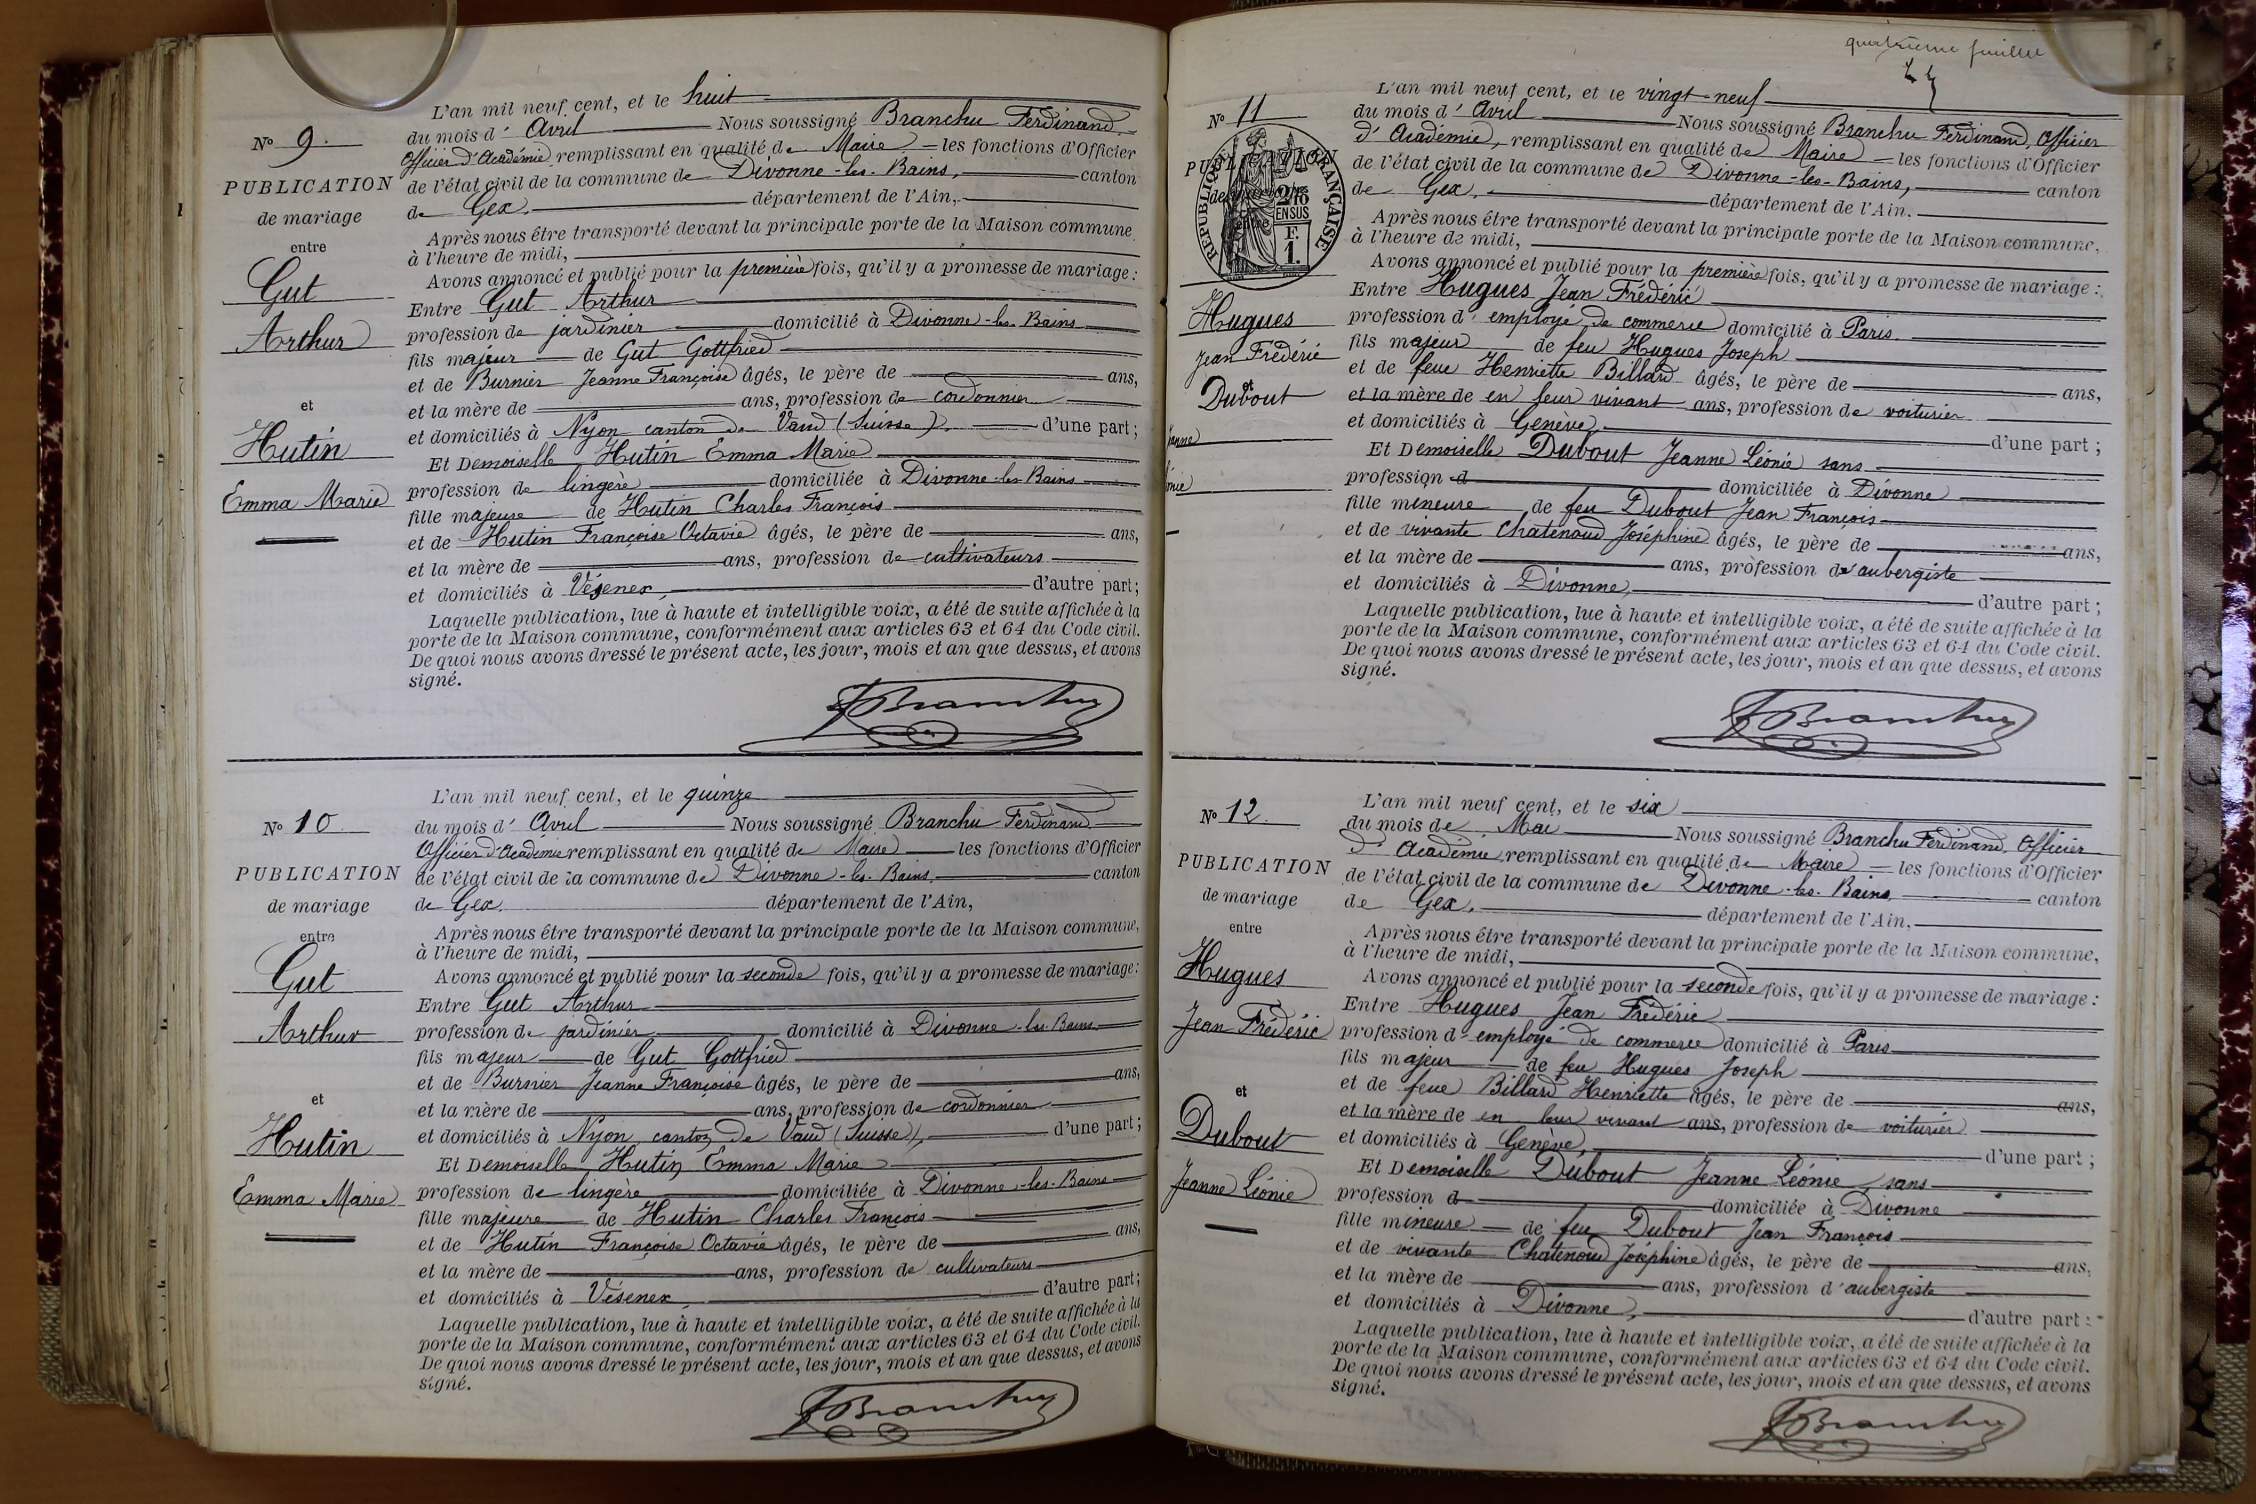 N° 9.
PUBLICATION
de mariage
entre
Gut
Arthur
et
Hutin
Emma Marie
L'an mil neuf cent, et le huit
du mois d' Avril Nous soussigné Branchu Ferdinand
Officier d'Académie remplissant en qualité de Maire les fonctions d'Officier
de l'état civil de la commune de Divonne-les-Bains, canton
de Gex. département de l'Ain,
Après nous être transporté devant la principale porte de la Maison commune
à l'heure de midi,
Avons annoncé et publié pour la première fois, qu'il y a promesse de mariage :
Entre Gut Arthur
profession de jardinier domicilié à Divonne-les-Bains
fils majeur de Gut Gottfried
et de Burnier Jeanne Françoise âgés, le père de ans,
et la mère de ans, profession de cordonnier
et domiciliés à Nyon canton de Vaud (Suisse). d'une part ;
Et Demoiselle Hutin Emma Marie
profession de lingère domiciliée à Divonne-les-Bains
fille majeure de Hutin Charles François
et de Hutin Françoise Octavie âgés, le père de ans,
et la mère de ans, profession de cultivateurs
et domiciliés à Vésenex, d'autre part;
Laquelle publication, lue à haute et intelligible voix, a été de suite affichée à la
porte de la Maison commune, conformément aux articles 63 et 64 du Code civil.
De quoi nous avons dressé le présent acte, les jour, mois et an que dessus, et avons
signé.
F Branchu
N° 10
PUBLICATION
de mariage
entre
Gut
Arthur
et
Hutin
Emma Marie
L'an mil neuf cent, et le quinze
du mois d' Avril Nous soussigné Branchu Ferdinand
Officier d'Académie remplissant en qualité de Maire les fonctions d'Officier
de l'état civil de la commune de Divonne-les-Bains, canton
de Gex. département de l'Ain,
Après nous être transporté devant la principale porte de la Maison commune,
à l'heure de midi,
Avons annoncé et publié pour la seconde fois, qu'il y a promesse de mariage:
Entre Gut Arthur
profession de jardinier domicilié à Divonne-les-Bains
fils majeur de Gut Gottfried
et de Burnier Jeanne Françoise âgés, le père de ans,
et la mère de ans, profession de cordonnier
et domiciliés à Nyon, canton de Vaud (Suisse), d'une part ;
Et Demoiselle Hutin Emma Marie
profession de lingère domiciliée à Divonne-les-Bains
fille majeure de Hutin Charles François
et de Hutin Françoise Octavie âgés, le père de ans,
et la mère de ans, profession de cultivateurs
et domiciliés à Vésenex, d'autre part;
Laquelle publication, lue à haute et intelligible voix, a été de suite affichée à la
porte de la Maison commune, conformément aux articles 63 et 64 du Code civil.
De quoi nous avons dressé le présent acte, les jour, mois et an que dessus, et avons
signé.
F Branchu
quatrième feuillet
N° 11
PUBLICATION
de mariage
entre
RÉPUBLIQUE FRANÇAISE
2/10
EN SUS
F.
1.
Hugues
Jean Frédéric
et
Dubout
Jeanne
L'an mil neuf cent, et le vingt-neuf
du mois d' Avril Nous soussigné Branchu Ferdinand, Officier
d'Académie, remplissant en qualité de Maire les fonctions d'Officier
de l'état civil de la commune de Divonne-les-Bains, canton
de Gex. département de l'Ain.
Après nous être transporté devant la principale porte de la Maison commune,
à l'heure de midi,
Avons annoncé et publié pour la première fois, qu'il y a promesse de mariage :
Entre Hugues Jean Frédéric
profession d' employé de commerce domicilié à Paris.
fils majeur de feu Hugues Joseph
et de feue Henriette Billard âgés, le père de ans,
et la mère de en leur vivant ans, profession de voiturier
et domiciliés à Genève, d'une part ;
Et Demoiselle Dubout Jeanne Léonie sans
profession d domiciliée à Divonne
fille mineure de feu Dubout Jean François
et de vivante Chatenoud Joséphine âgés, le père de ans,
et la mère de ans, profession d'aubergiste
et domiciliés à Divonne, d'autre part ;
Laquelle publication, lue à haute et intelligible voix, a été de suite affichée à la
porte de la Maison commune, conformément aux articles 63 et 64 du Code civil.
De quoi nous avons dressé le présent acte, les jour, mois et an que dessus, et avons
signé.
F Branchu
N° 12.
PUBLICATION
de mariage
entre
Hugues
Jean Frédéric
et
Dubout
Jeanne Léonie
L'an mil neuf cent, et le six
du mois de Mai Nous soussigné Branchu Ferdinand, Officier
d'Académie, remplissant en qualité de Maire les fonctions d'Officier
de l'état civil de la commune de Divonne-les-Bains, canton
de Gex. département de l'Ain.
Après nous être transporté devant la principale porte de la Maison commune,
à l'heure de midi,
Avons annoncé et publié pour la seconde fois, qu'il y a promesse de mariage :
Entre Hugues Jean Frédéric
profession d' employé de commerce domicilié à Paris
fils majeur de feu Hugues Joseph
et de feue Billard Henriette âgés, le père de ans,
et la mère de en leur vivant ans, profession de voiturier
et domiciliés à Genève, d'une part ;
Et Demoiselle Dubout Jeanne Léonie sans
profession d domiciliée à Divonne
fille mineure de feu Dubout Jean François
et de vivante Chatenoud Joséphine âgés, le père de ans,
et la mère de ans, profession d'aubergiste
et domiciliés à Divonne, d'autre part :
Laquelle publication, lue à haute et intelligible voix, a été de suite affichée à la
porte de la Maison commune, conformément aux articles 63 et 64 du Code civil.
De quoi nous avons dressé le présent acte, les jour, mois et an que dessus, et avons
signé.
F Branchu